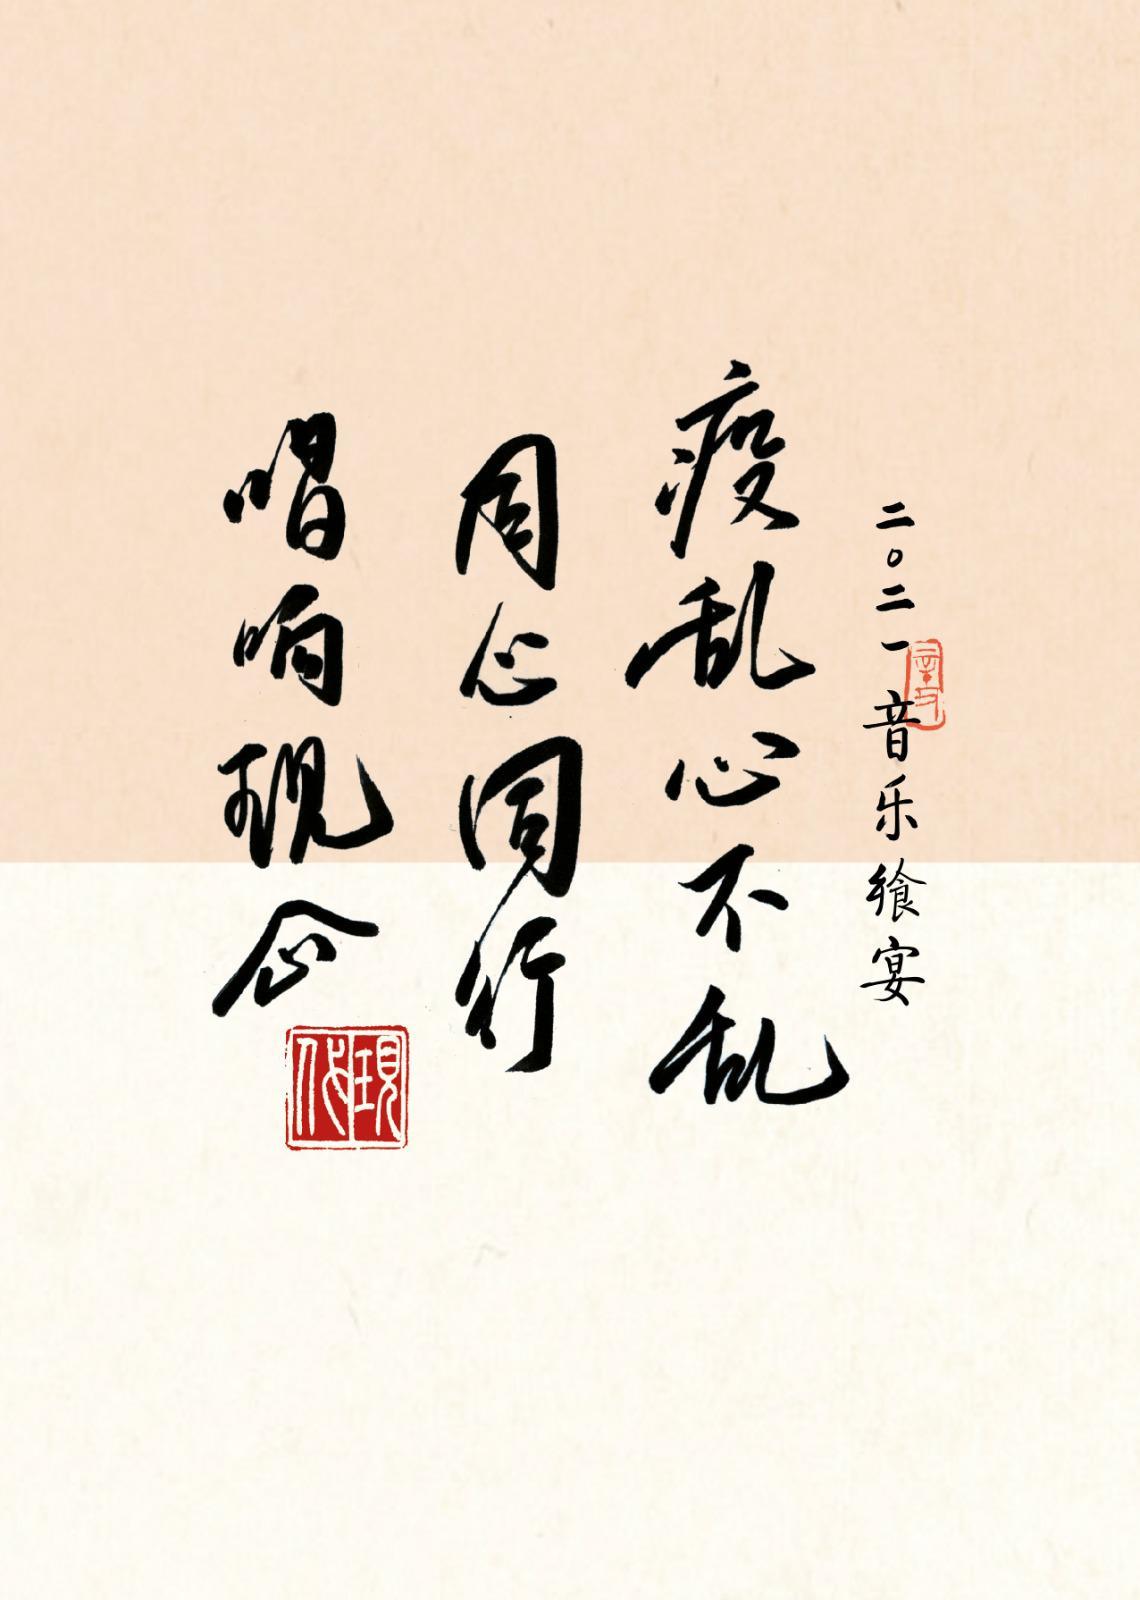 二〇二一音乐飨宴
疫乱心不乱
同心同行
唱响现念
現代